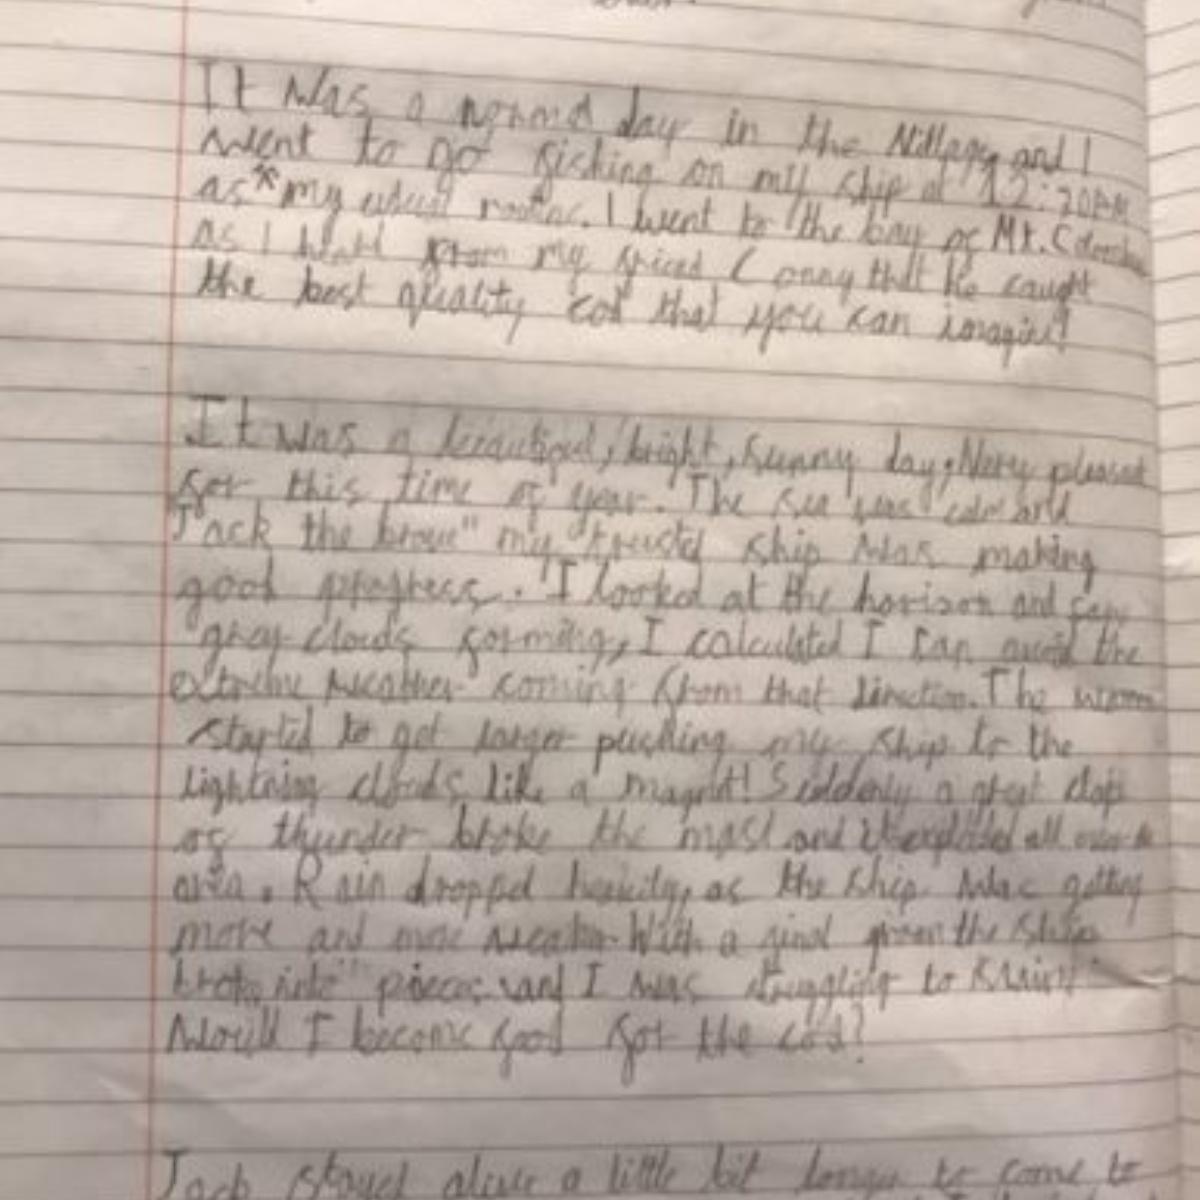 It was a normal day in the village, and I
went to go fishing on my ship at 12:20PM
as * my usual . I went to the bay of Mt.
as I from my friend Conny that he caught
the best quality cod that you can
It was a bright, sunny day, Very pleasant
for this time of year. The sea was calm and
Jack the brave" my trusted ship was making
good progress. I looked at the horizon and saw
grey clouds forming, I calculated I can avoid the
extreme weather coming from that direction. The
started to get larger pushing my ship to the
lightning clouds like a magnet! Suddenly a great clap
of thunder broke the mast and it exploded all over the
area. Rain dropped heavily, as the ship was getting
more and more With a final the ship
broke into pieces and I was struggling to
Would I become food for the cod?
Jack stayed alive a little bit longer to come to